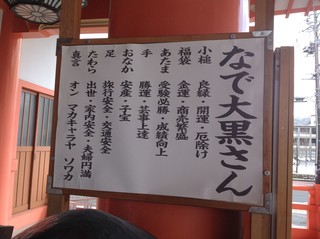 なで大黒さん
小槌　良縁・開運・厄除け
福袋　金運・商売繁盛
あたま　受験必勝・成績向上
手　勝運・芸事上達
おなか　安産・子宝
足　旅行安全・交通安全
たわら　出世・家内安全・夫婦円満
真言　オン　マカキャラヤ　ソワカ